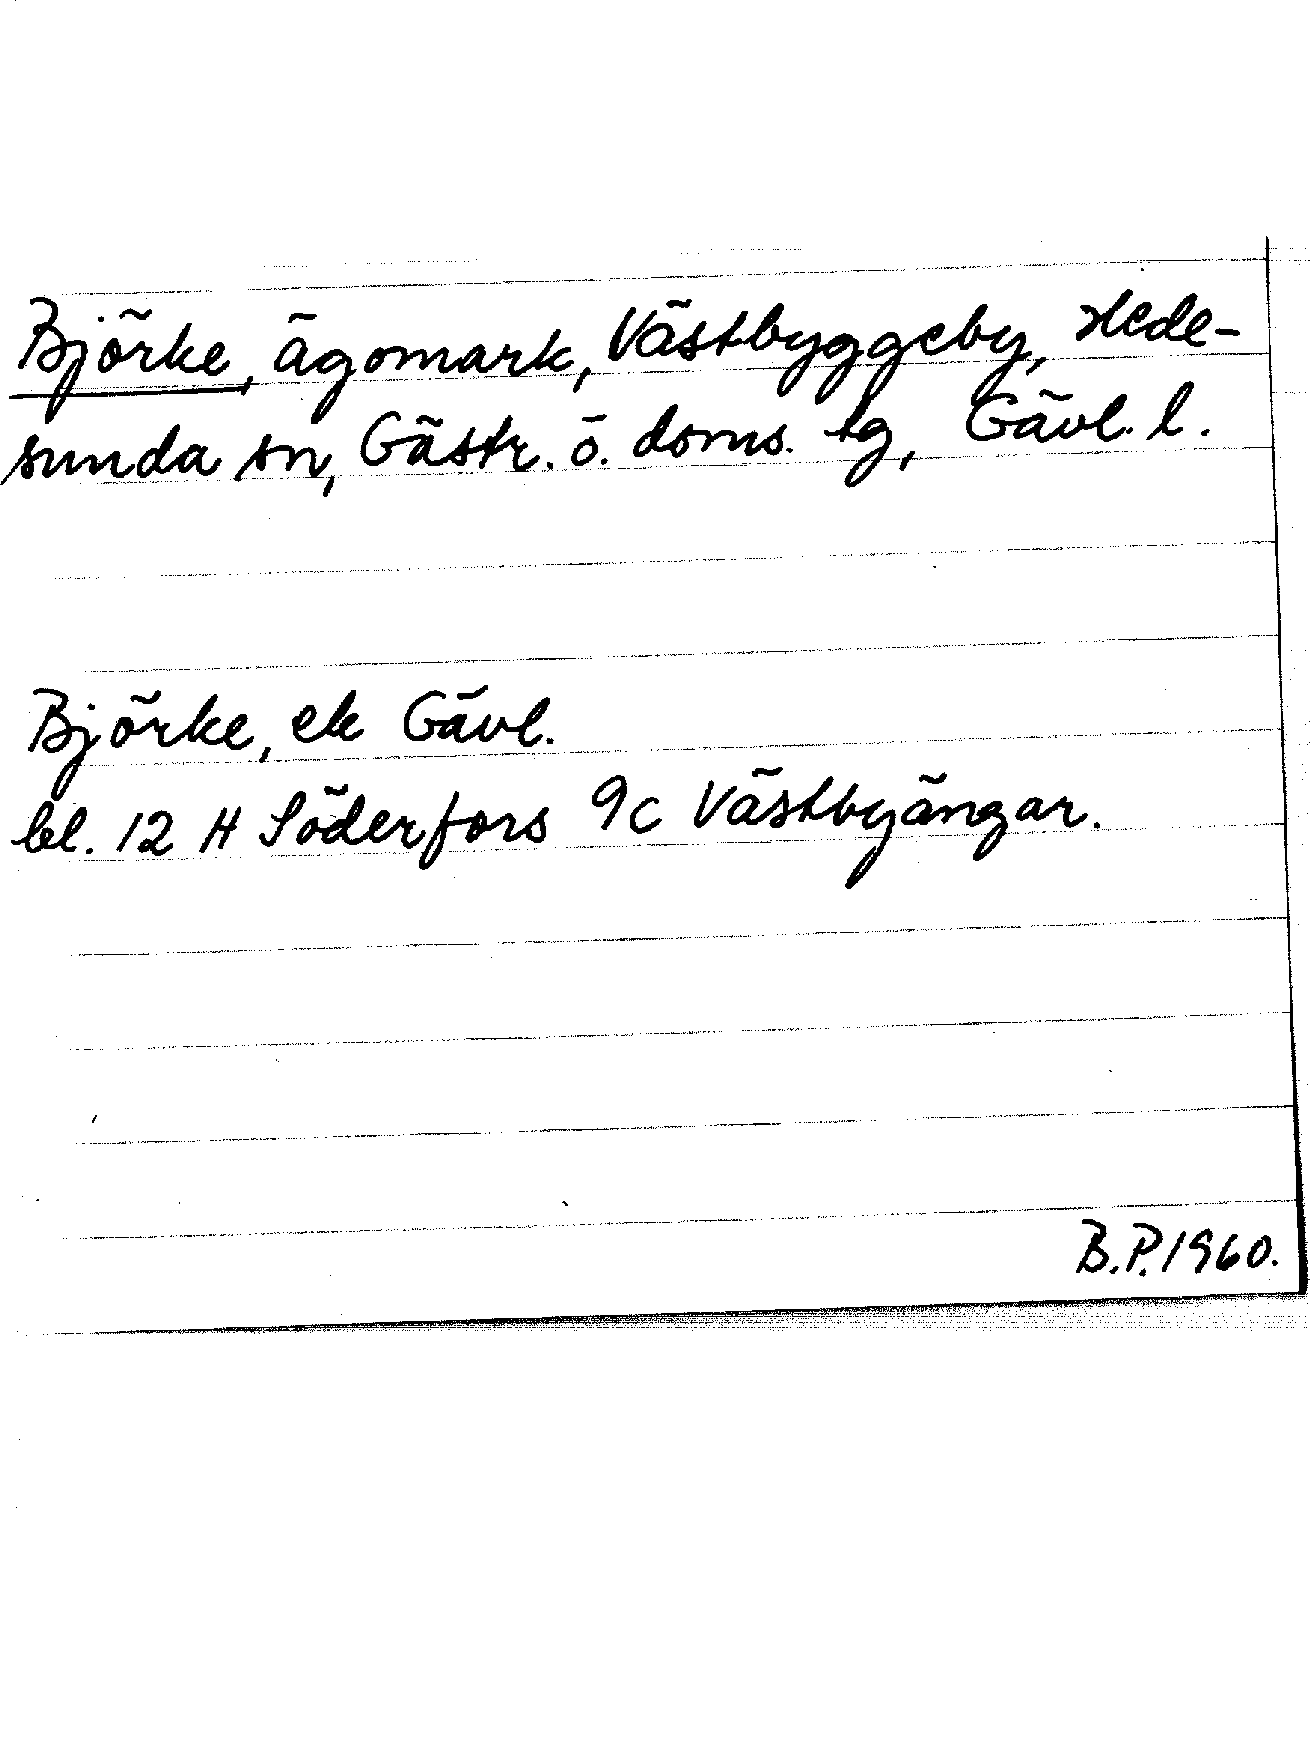 Björke, ägomark, Västbyggeby, Hede-
sunda sn, Gästr. ö. doms. tg, Gävl. l.
Björke, ek Gävl.
bl. 12 H Söderfors 9c Västbyängar.
B.P. 1960.